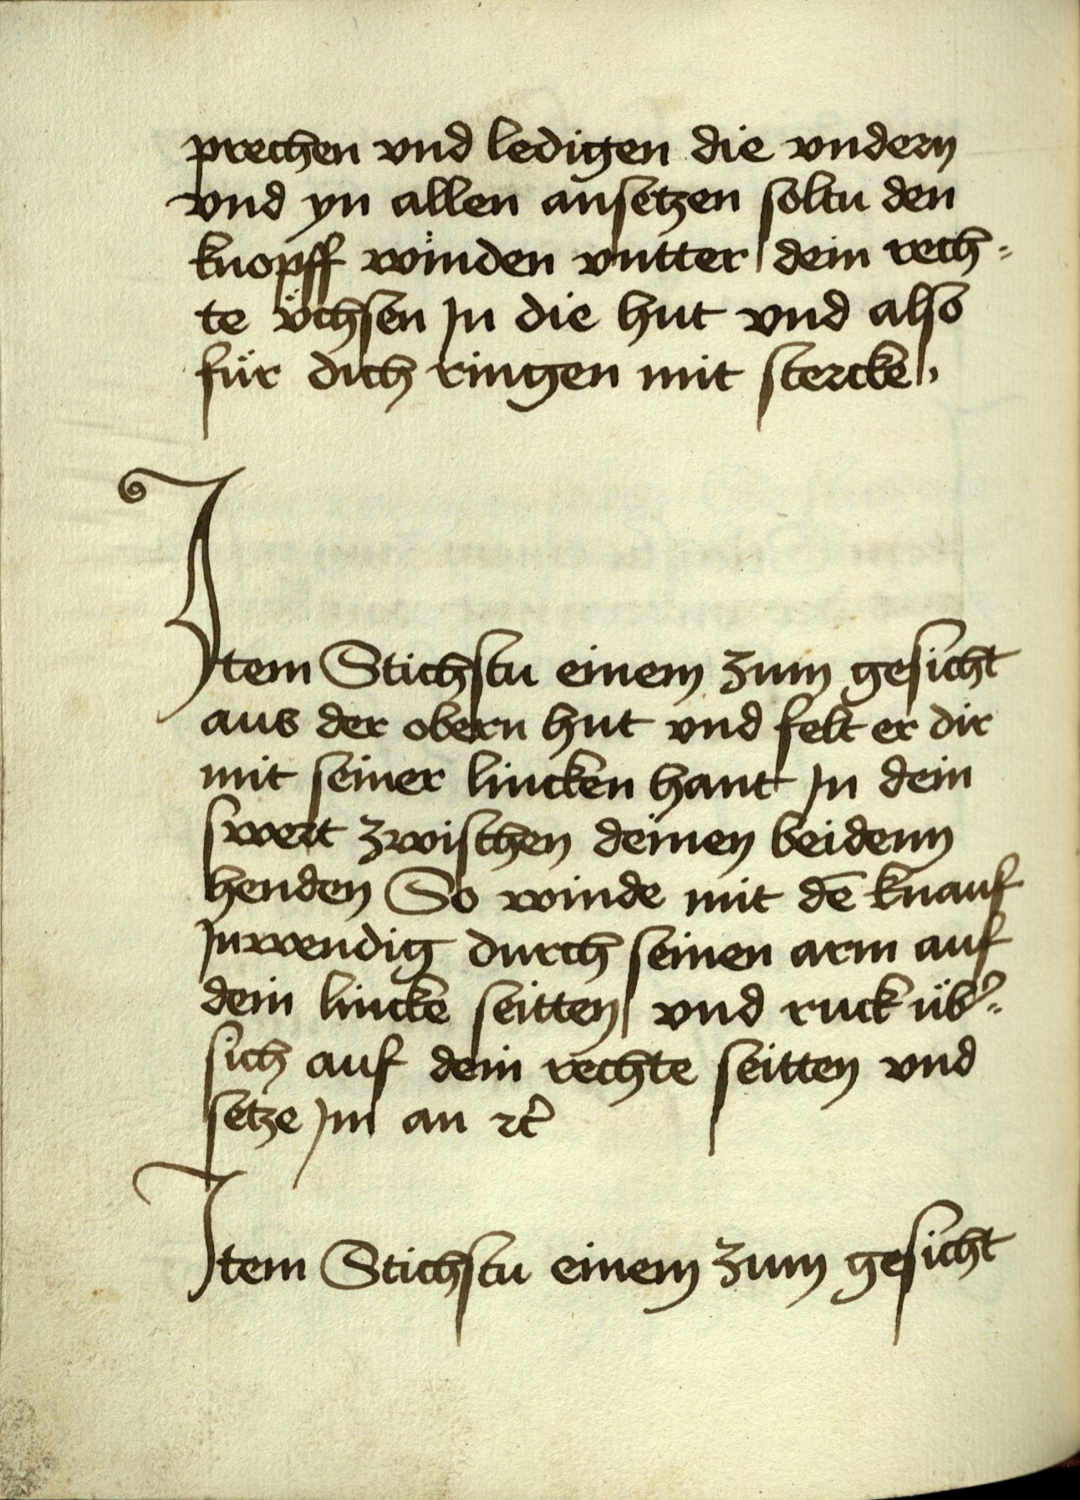 prechen vnd ledigen die vndern
vnd yn allen ansetzen soltu den
knopff winden vntter | dein rech=
te v̈chsen Jn die hut vnd also
für dich ringen mit stercke |,
Jtem Stichstu einem zum gesicht
aus der obern hut vnd felt er dir
mit seiner lincken hant Jn dein
swert zwischen deinen beidenn
henden So winde mit dē knauf
Jnwendig durch seinen arm auf
dein lincke seitten | vnd ruck üb᾿=
sich auf dein rechte seitten vnd
setze Jm an ꝛc̄
Jtem Stichstu einem zum gesicht